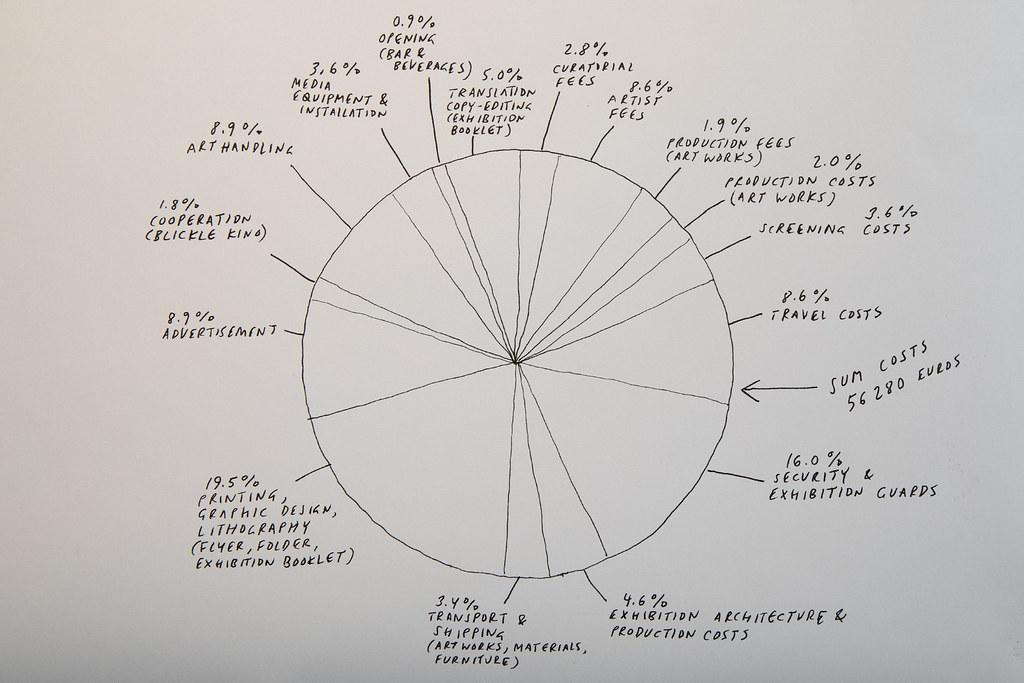 0.9%
OPENING
(BAR &
BEVERAGES)
5.0%
TRANSLATION
COPY-EDITING
(EXHIBITION
BOOKLET)
2.8%
CURATORIAL
FEES
8.6%
ARTIST
FEES
1.9%
PRODUCTION FEES
(ART WORKS)
2.0%
PRODUCTION COSTS
(ART WORKS)
3.6%
SCREENING COSTS
8.6%
TRAVEL COSTS
SUM COSTS
56280 EUROS
16.0%
SECURITY &
EXHIBITION GUARDS
4.6%
EXHIBITION ARCHITECTURE &
PRODUCTION COSTS
3.4%
TRANSPORT &
SHIPPING
(ART WORKS, MATERIALS,
FURNITURE)
19.5%
PRINTING,
GRAPHIC DESIGN,
LITHOGRAPHY
(FLYER, FOLDER,
EXHIBITION BOOKLET)
8.9%
ADVERTISEMENT
1.8%
COOPERATION
(BLICKLE KINO)
8.9%
ART HANDLING
3,6%
MEDIA
EQUIPMENT &
INSTALLATION